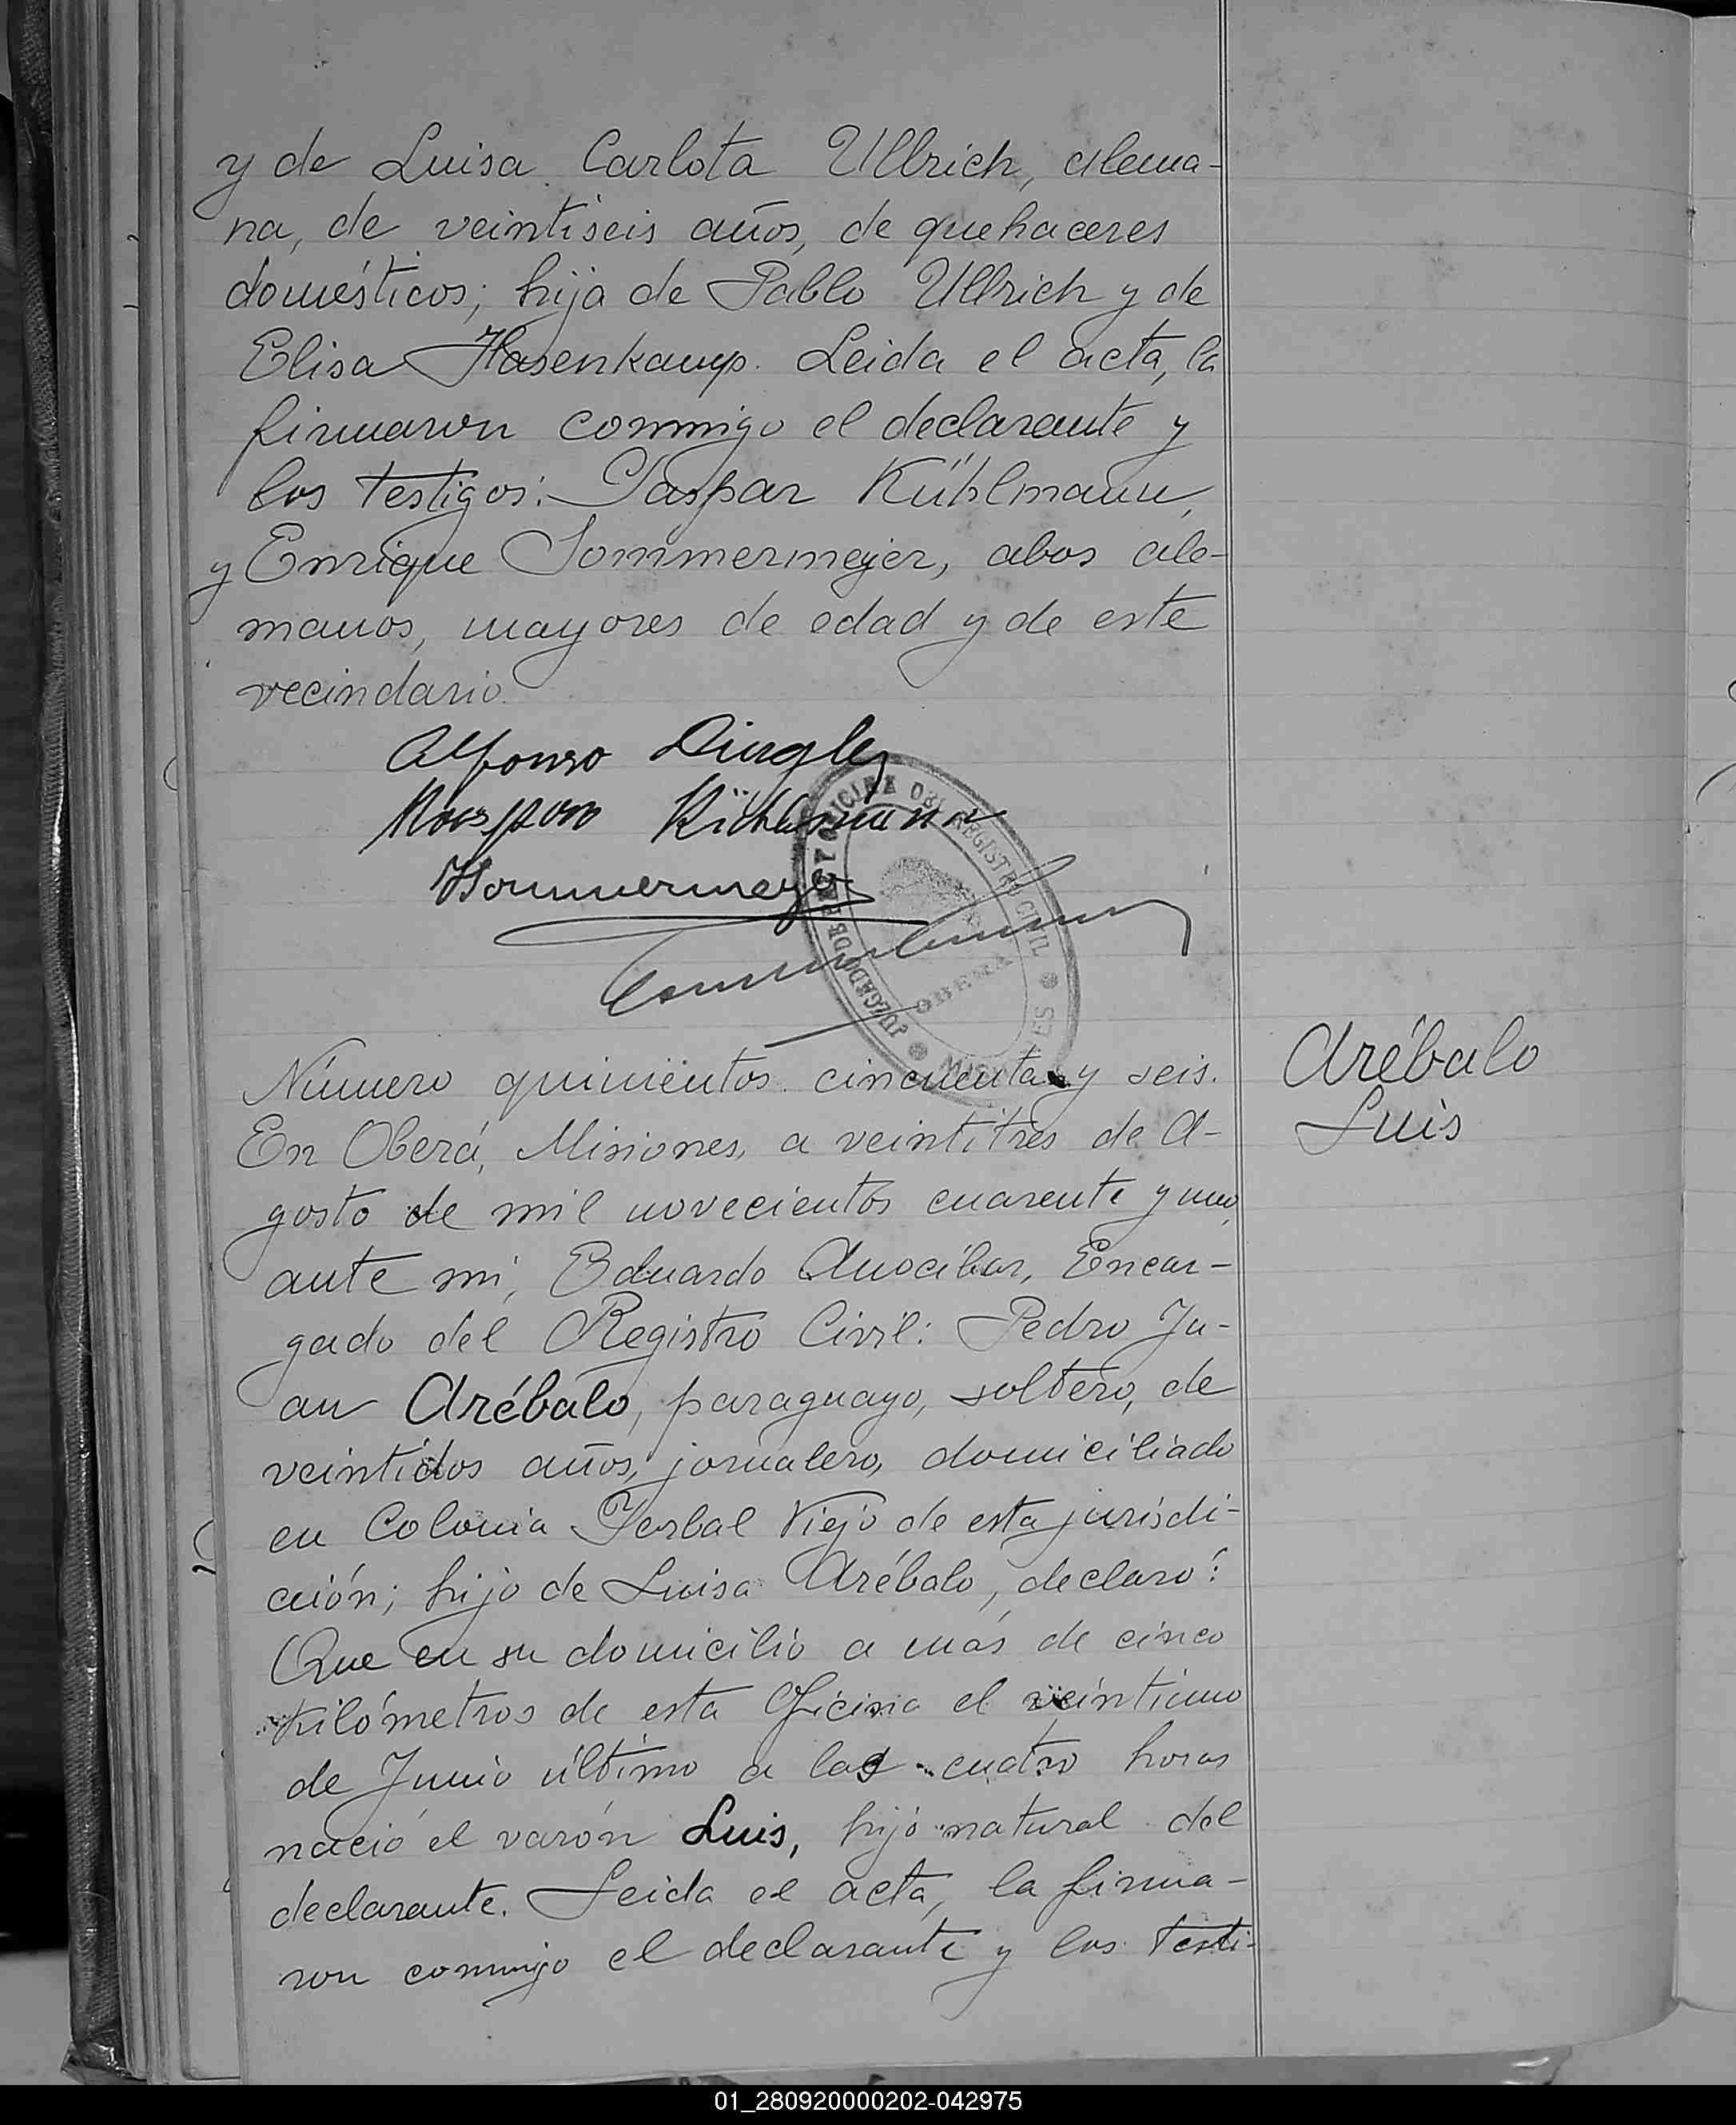 y de Luisa Carlota Ullrich, alema-
na, de veintiseis años, de quehaceres
domésticos; hija de Pablo Ullrich y de
Elisa Hasenkamp. Leida el acta, la
firmaron conmigo el declarante y
los testigos: Gaspar Kühlmann,
y Enrique Sommermejer, abos ale-
manos, mayores de edad y de este
vecindario.
Alfonso
Kühlmann
HSommermeyer
JUZGADO DE PAZ OFICINA DEL REGISTRO CIVIL
OBERA
MISIONES
Número quinientos cincuenta y seis.
En Oberá, Misiones, a veintitres de A-
gosto de mil novecientos cuarente y uno,
ante mi, Eduardo Anocibar, Encar-
gado del Registro Civil: Pedro Ju-
an Arébalo, paraguayo, soltero, de
veintidos años, jornalero, domiciliado
en Colonia Yerbal Viejo de esta jurisdi-
ción; hijo de Luisa Arébalo, declaro:
Que en su domicilio a mas de cinco
kilómetros de esta Oficina el veintiuno
de Junio último a las cuatro horas
nació el varón Luis, hijo natural del
declarante. Leida el acta, la firma-
ron conmigo el declarante y los testi-
Arébalo
Luis
01_280920000202-042975